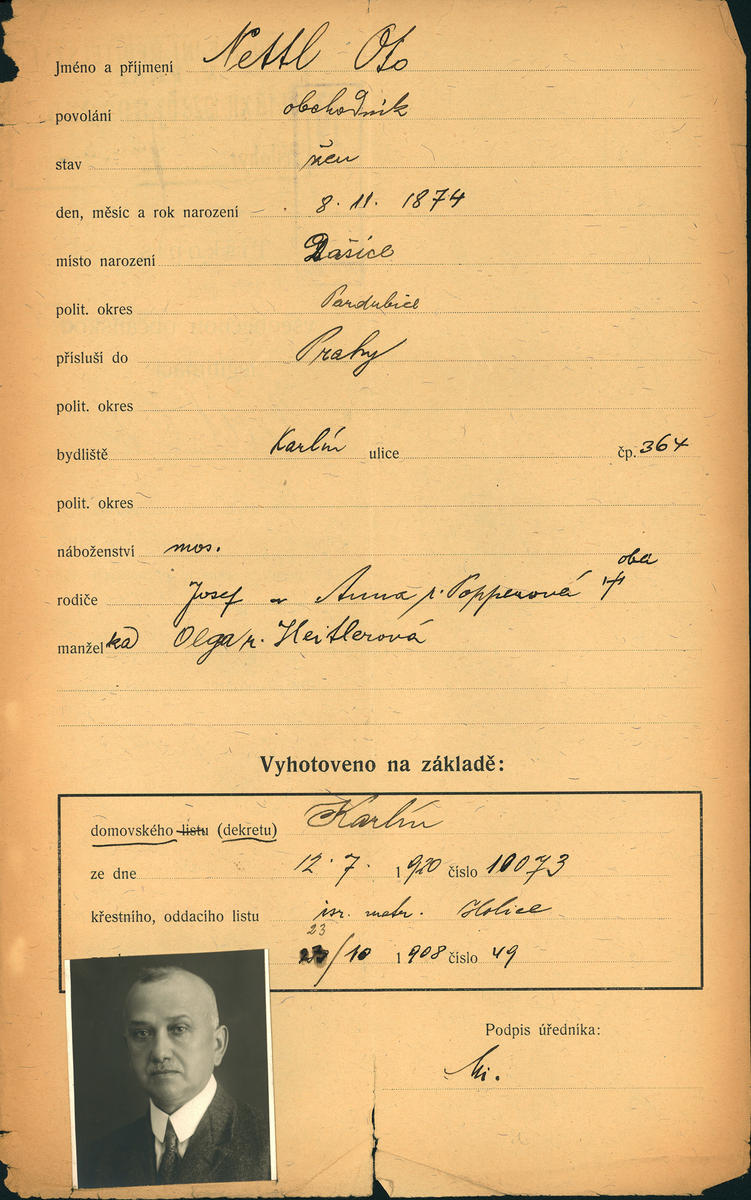 Jméno a příjmení Nettl Oto
povolání obchodník
stav žen
den, měsíc a rok narození 8. 11. 1874
místo narození Dašice
polit. okres Pardubice
přísluší do Prahy
polit. okres
bydliště Karlín ulice čp. 364
polit. okres
náboženství mos.
oba
rodiče Josef a Anna r. Popperová †
manžel ka Olga r. Heitlerová
Vyhotoveno na základě:
domovského listu (dekretu) Karlín
ze dne 12. 7. 1920 číslo 10073
křestního, oddacího listu isr. matr. Holice
23
23/10 1908 číslo 49
Podpis úředníka: